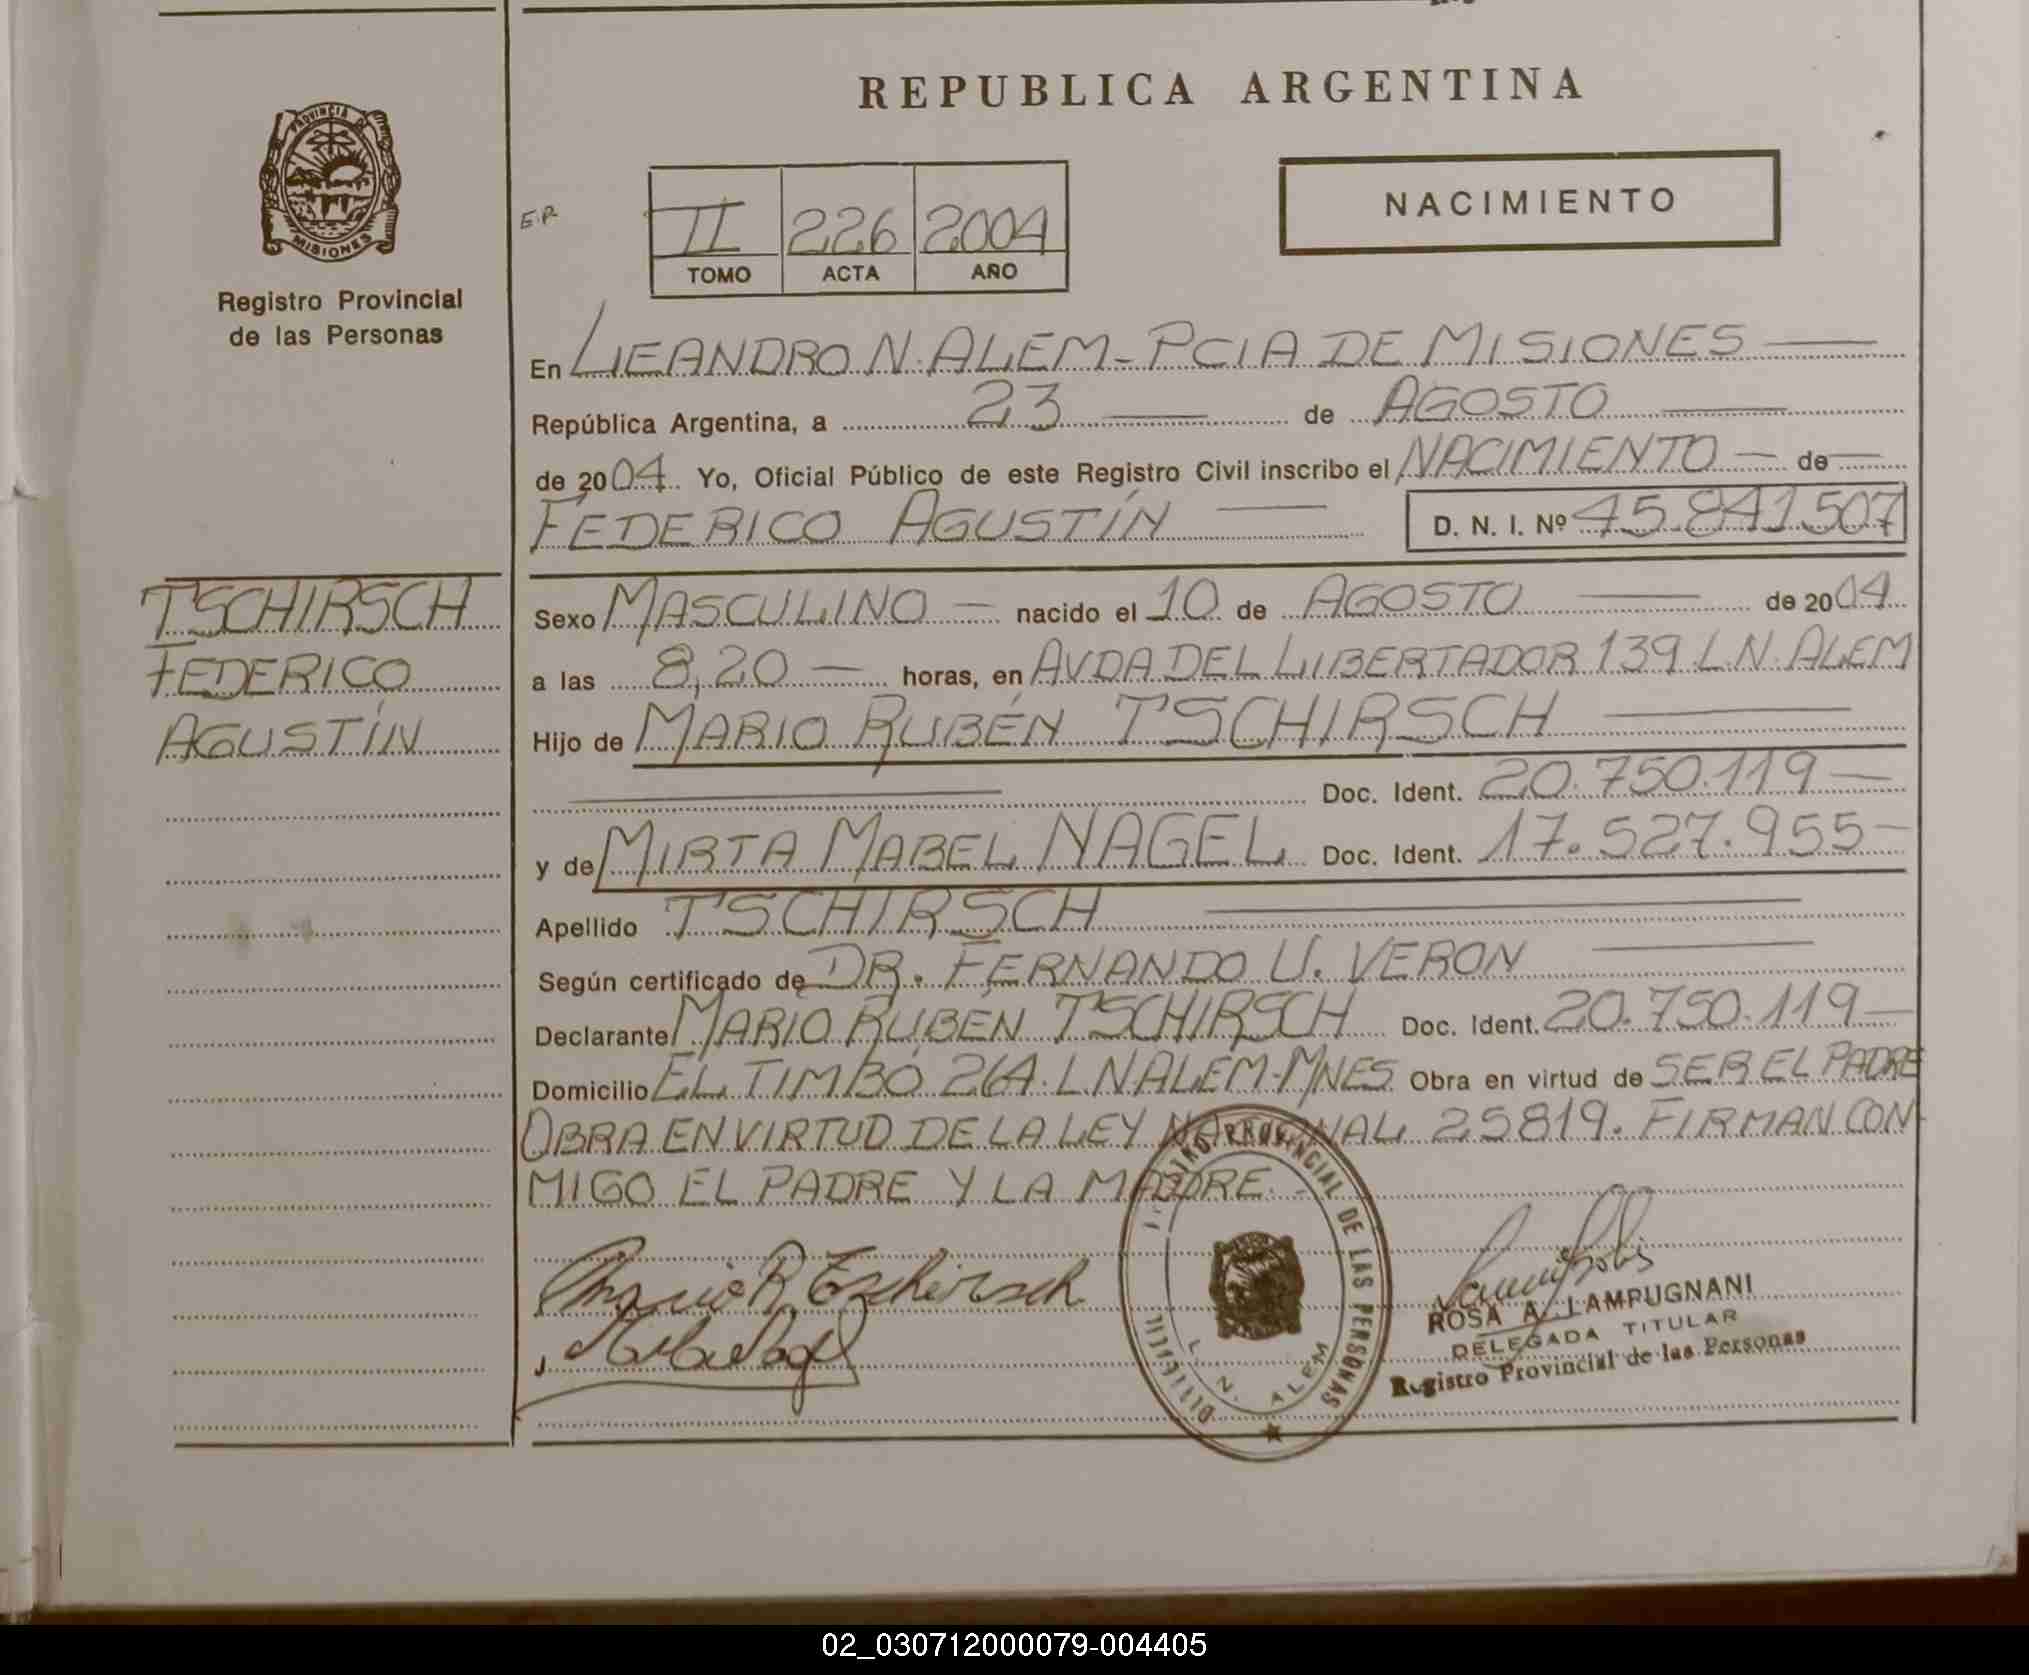 REPUBLICA ARGENTINA
PROVINCIA DE
MISIONES
Registro Provincial
de las Personas
E.P.
II 226 2004
TOMO ACTA AÑO
NACIMIENTO
En LEANDRO N. ALEM - PCIA DE MISIONES
República Argentina, a 23 de AGOSTO
de 2004 Yo, Oficial Público de este Registro Civil inscribo el NACIMIENTO de
FEDERICO AGUSTÍN D. N. I. Nº 45.841.507
TSCHIRSCH
FEDERICO
AGUSTÍN
Sexo MASCULINO nacido el 10 de AGOSTO de 2004
a las 8,20 horas, en AVDA DEL LIBERTADOR 139 L.N. ALEM
Hijo de MARIO RUBÉN TSCHIRSCH
Doc. Ident. 20.750.119
y de MIRTA MABEL NAGEL Doc. Ident. 17.527.955
Apellido TSCHIRSCH
Según certificado de DR. FERNANDO U. VERON
Declarante MARIO RUBÉN TSCHIRSCH Doc. Ident. 20.750.119
Domicilio EL TIMBÓ 264. L N ALEM - MNES Obra en virtud de SER EL PADRE
OBRA EN VIRTUD DE LA LEY NACIONAL 25819. FIRMAN CON
MIGO EL PADRE Y LA MADRE.
Mario R. Tschirsch
PROVINCIAL DE LAS PERSONAS
L. N. ALEM
ROSA A. LAMPUGNANI
DELEGADA TITULAR
Registro Provincial de las Personas
02_030712000079-004405